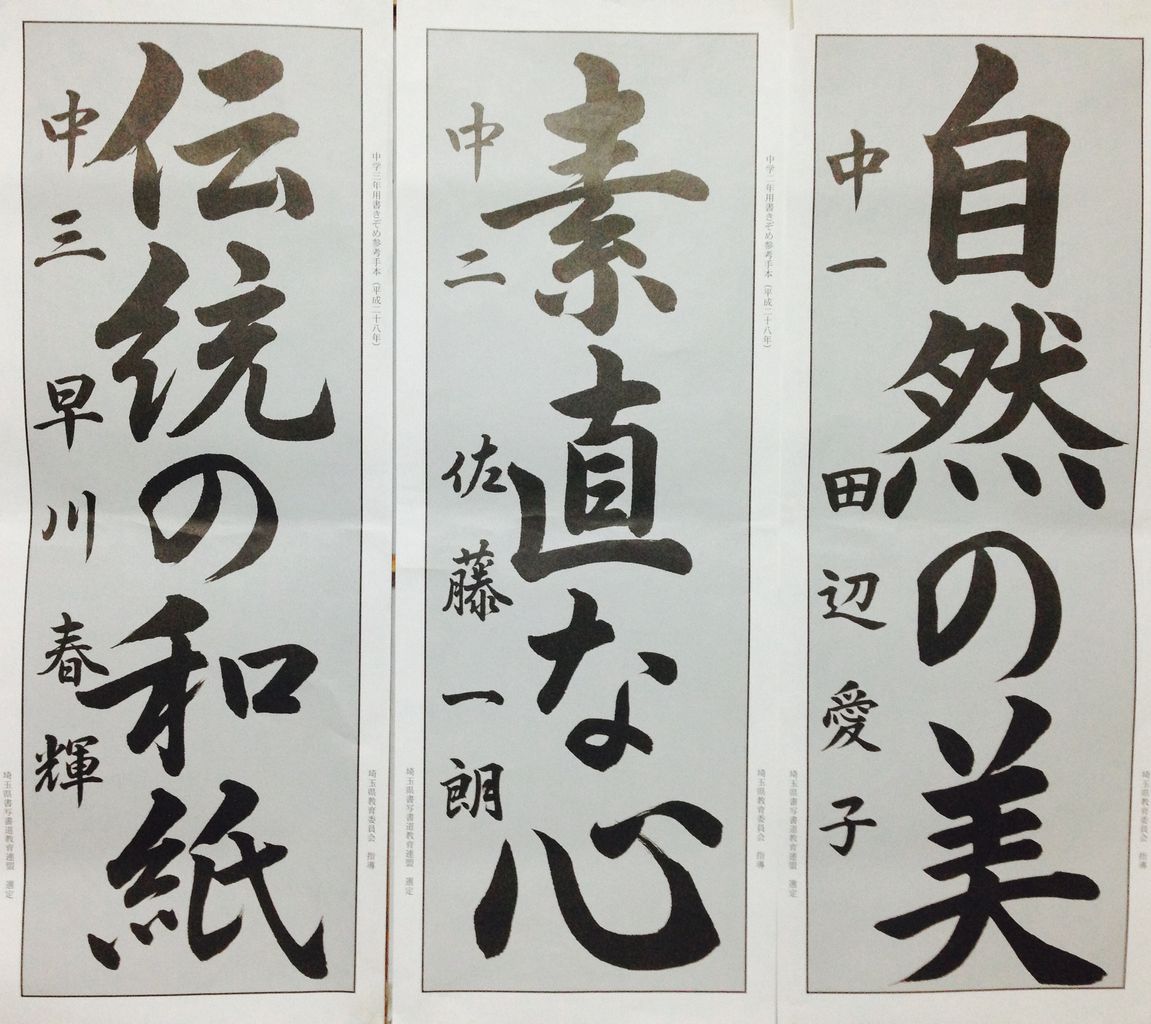 自然の美
中一 田辺愛子
埼玉県教育委員会 指導
埼玉県書写書道教育連盟 選定
中学二年用書きぞめ参考手本（平成二十八年）
素直な心
中二 佐藤一朗
埼玉県教育委員会 指導
埼玉県書写書道教育連盟 選定
中学三年用書きぞめ参考手本（平成二十八年）
伝統の和紙
中三 早川春輝
埼玉県教育委員会 指導
埼玉県書写書道教育連盟 選定